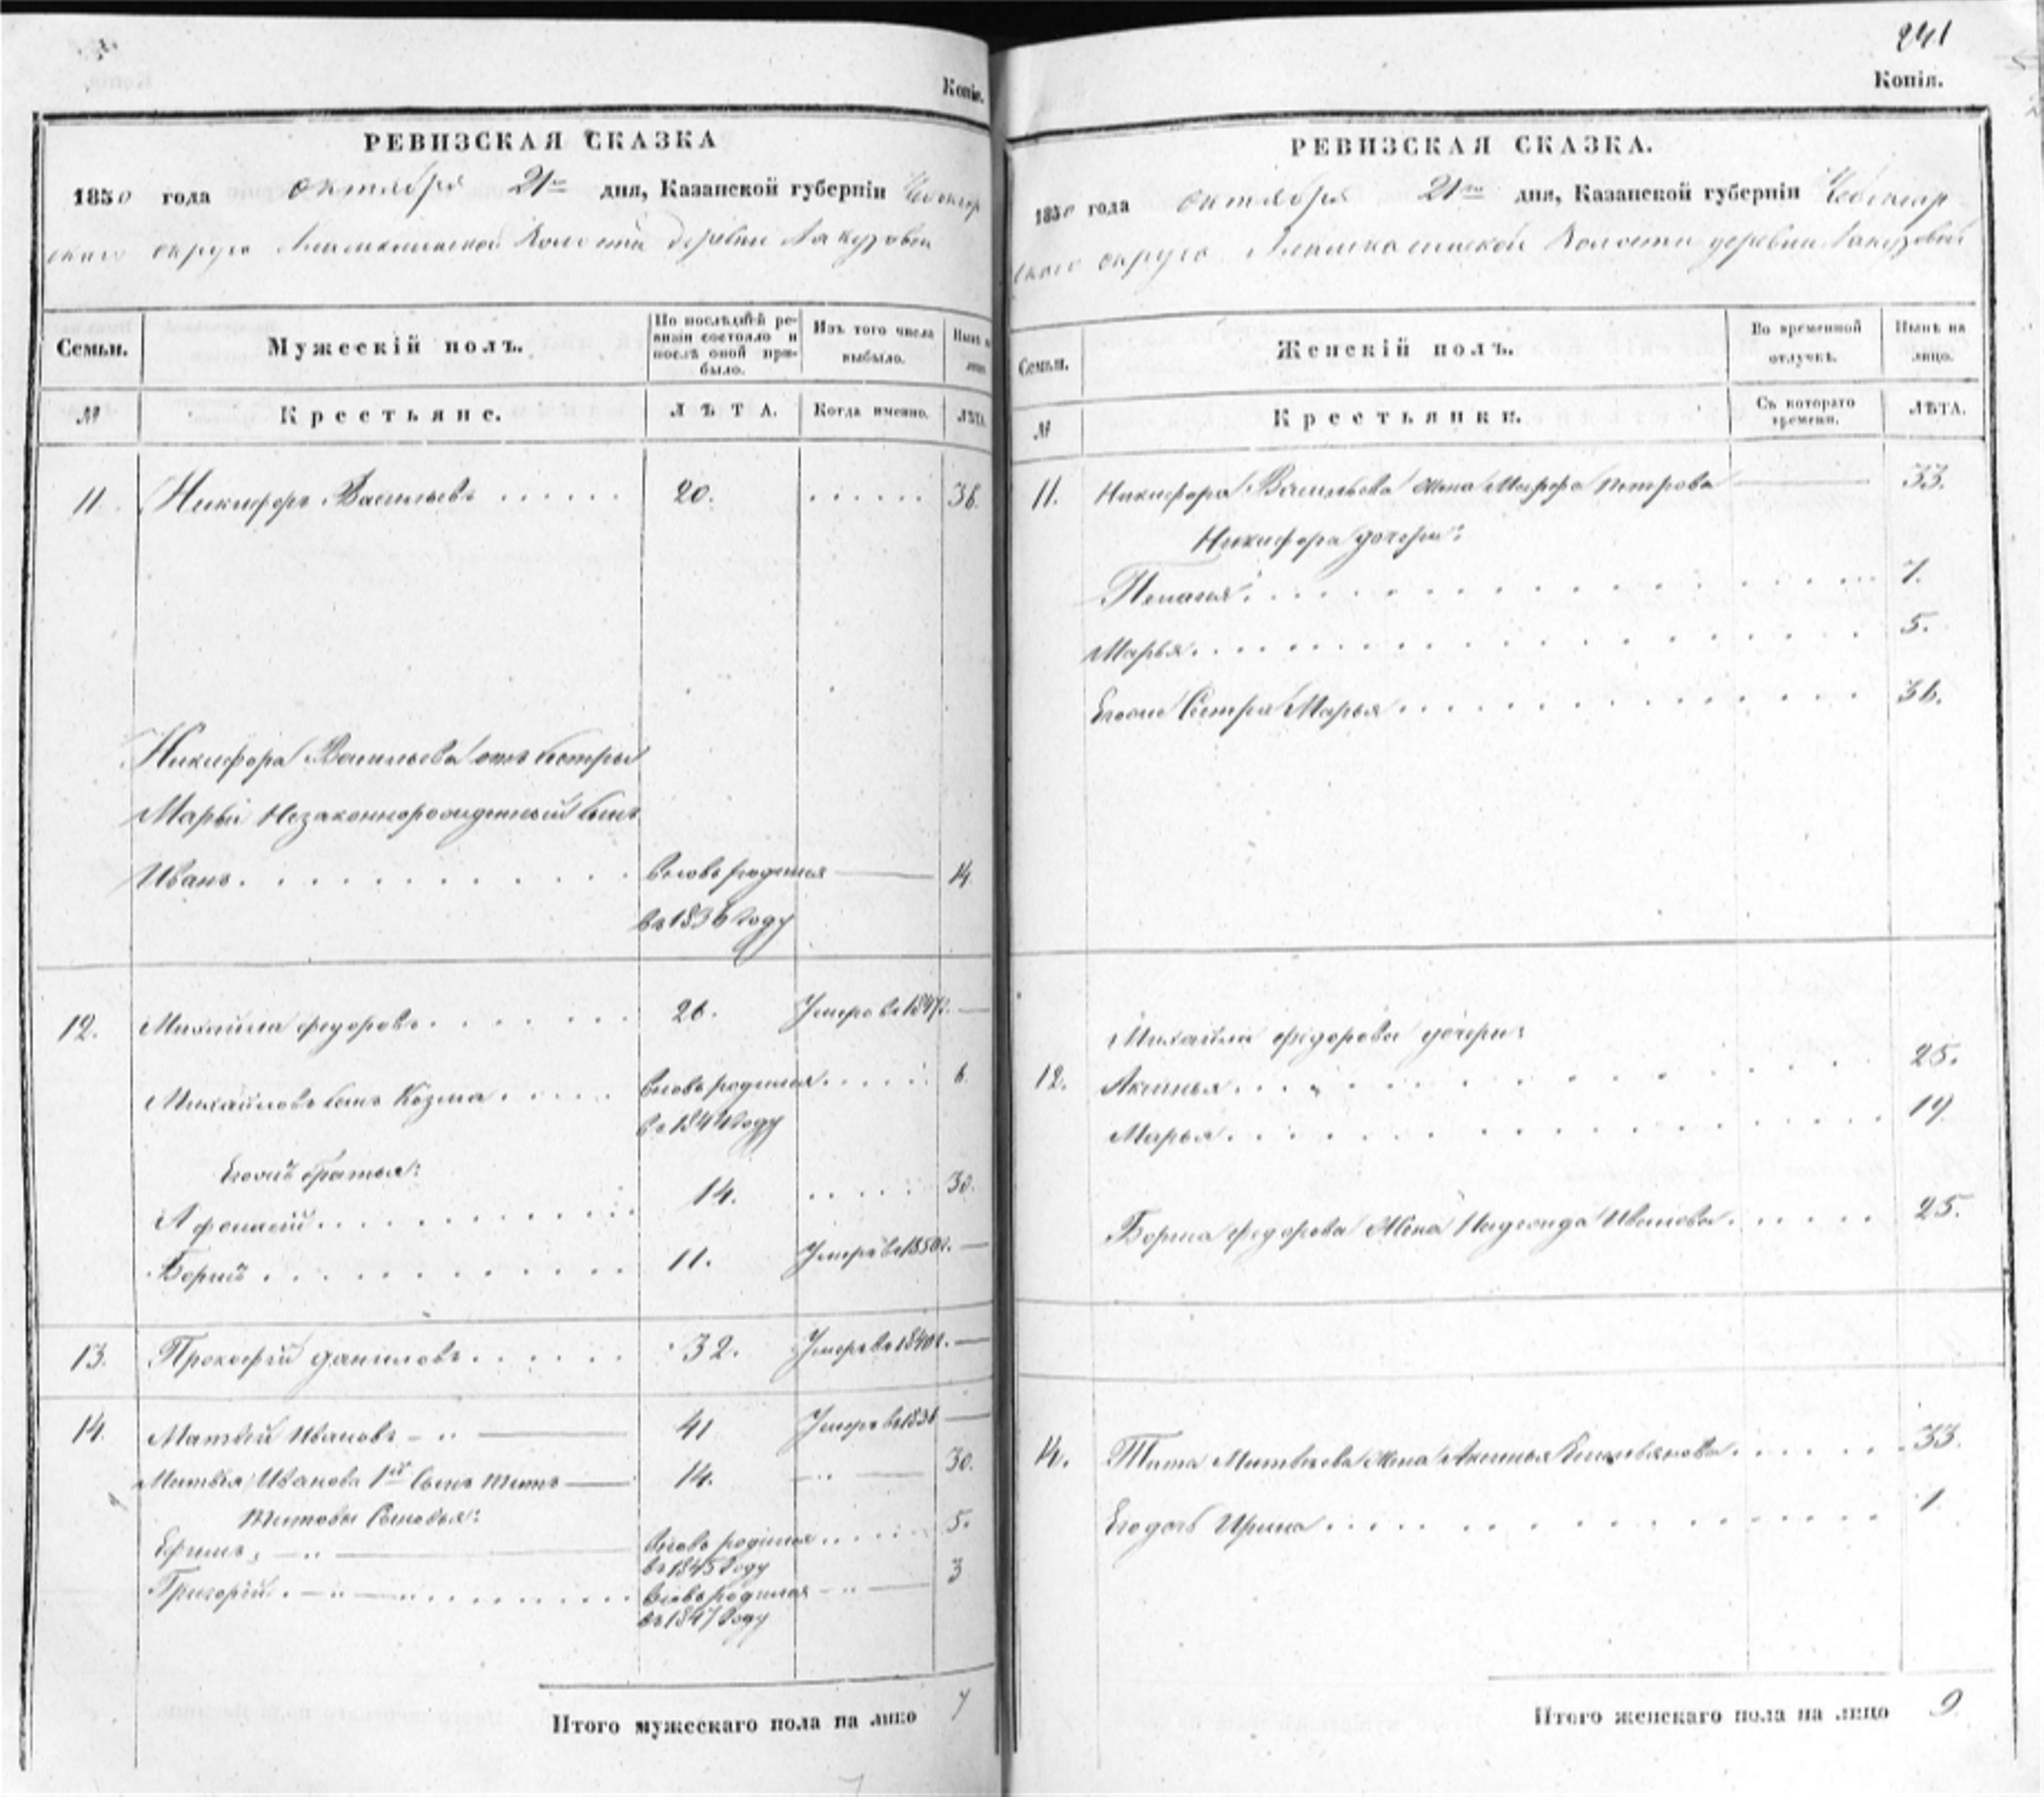 Копія.
РЕВИЗСКАЯ СКАЗКА
1850 года октября 21го дня, Казанской губерніи Чебоксар
скаго округа волости деревни
Семьи.
Мужескій полъ.
По послѣдней ре-
визіи состояло и
послѣ оной при-
было.
Изъ того числа
выбыло.
Нынѣ на
лицо.
№
Крестьяне.
ЛѢТА.
Когда именно.
ЛѢТА.
11. Никифоръ Васильевъ . . . . . . 20. . . . . . . 36.
Никифора Васильева отъ сестры
Марьи незаконнорожденный сынъ
Иванъ. . . . . . . . . . . . вновь родился — 14.
въ 1836 году
12. Михайла Федоровъ. . . . . . . 26. Умеръ въ 1847г. —
Михайловъ сынъ Козма . . . . . вновь родился. . . . . 6.
въ 1844 году
Егожъ братья:
Афонасій. . . . . . . . . . . 14. . . . . . 30.
Борисъ . . . . . . . . . . . 11. Умеръ въ 1850г. —
13. Прокофій Даниловъ. . . . . . 32. Умеръ въ 1840г. —
14. Матвѣй Ивановъ — 41 Умеръ въ 1836 —
Матвѣя Иванова 1й сынъ Титъ — 14. — 30.
Титовы сыновья:
Ефимъ, — вновь родился . . . . . 5.
въ 1845 году
Григорій. — . . . . . . . . . . вновь родился — 3
въ 1847 году
Итого мужескаго пола на лицо 7
241
Копія.
РЕВИЗСКАЯ СКАЗКА.
1850 года октября 21го дня, Казанской губерніи Чебоксар
скаго округа волости деревни
Семьи.
Женскій полъ.
Во временной
отлучкѣ.
Нынѣ на
лицо.
№
Крестьянки.
Съ котораго
времени.
ЛѢТА.
11. Никифора Васильева жена Марфа Петрова — 33.
Никифора дочери:
Пелагея . . . . . . . . . . . . . . . 7.
Марья. . . . . . . . . . . . . . . . 5.
Егоже сестра Марья . . . . . . . . . . . 36.
Михайлы Федорова дочери:
12. Аксинья. . . . . . . . . . . . . . . 25.
Марья. . . . . . . . . . . . . . . . 19.
Бориса Федорова жена Надежда Иванова. . . . . . 25.
14. Тита Матвѣева жена Аксинья Емельянова. . . . . . 33.
Его дочь Ирина . . . . . . . . . . . . . 1.
Итого женскаго пола на лицо 9